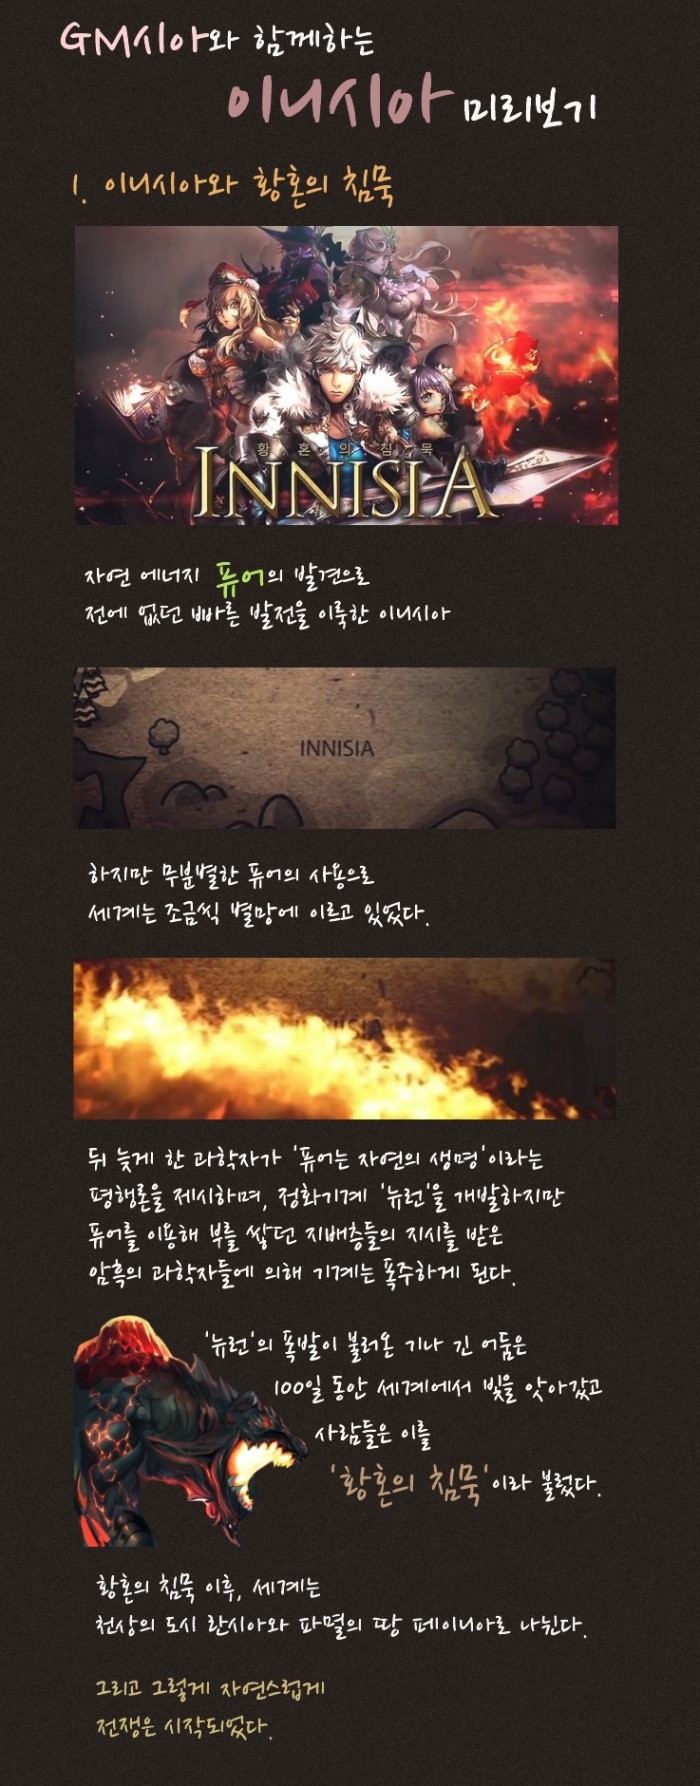 GM시아와 함께하는
이니시아 미리보기
1. 이니시아와 황혼의 침묵
황혼의침묵
INNISIA
자연 에너지 퓨어의 발견으로
전에 없던 빠른 발전을 이룩한 이니시아
INNISIA
하지만 무분별한 퓨어의 사용으로
세계는 조금씩 멸망에 이르고 있었다.
뒤 늦게 한 과학자가 '퓨어는 자연의 생명'이라는
평행론을 제시하며, 정화기계 '뉴런'을 개발하지만
퓨어를 이용해 부를 쌓던 지배층들의 지시를 받은
암흑의 과학자들에 의해 기계는 폭주하게 된다.
'뉴런'의 폭발이 불러온 기나 긴 어둠은
100일 동안 세계에서 빛을 앗아갔고
사람들은 이를
'황혼의 침묵'이라 불렀다.
황혼의 침묵 이후, 세계는
천상의 도시 란시아와 파멸의 땅 페이니아로 나뉜다.
그리고 그렇게 자연스럽게
전쟁은 시작되었다.